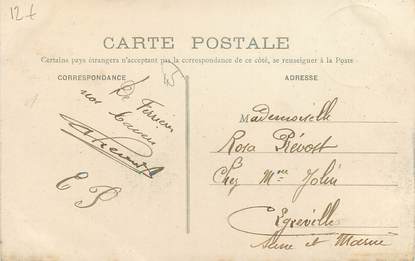 12 f
CARTE POSTALE
Certains pays étrangers n'acceptant pas la correspondance de ce côté, se renseigner à la Poste
CORRESPONDANCE
ADRESSE
De
nos
E P
Mademoiselle
Rosa Prévost
Chez Mme Jolin
Egreville
Seine et Marne